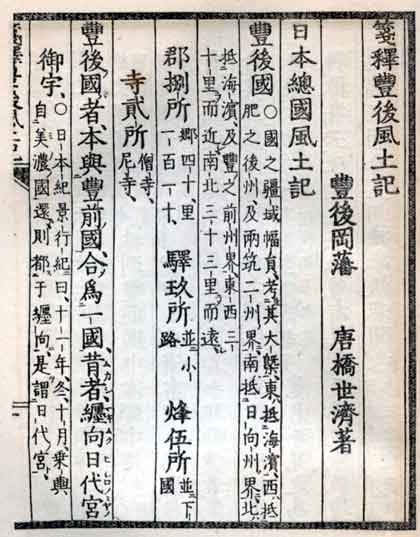 箋釋豐後風土記
豐後岡藩 唐橋世濟著
日本總國風土記
豐後國
〇國之疆域幅員、考其大槩、東抵海濱、西抵
肥之後州、及兩筑二州界、南抵日向州界、北
抵海濱、及豐之前州界、東西三
十里而近南北三十三里而遠
郡捌所 鄉四十、里一百一十 驛玖所 並小路 烽伍所 並下國
寺貳所 僧寺、尼寺、
豐後國者、本與豐前國、合爲一國、昔者纒向日代宮
御宇、
〇日本紀景行紀曰、十一年、冬、十月、乘輿
自美濃國還、則都于纒向、是謂日代宮、